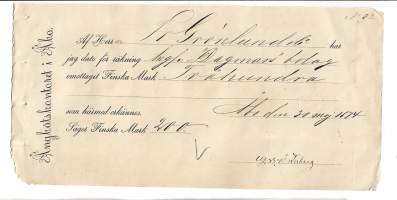 Ångbåtskontoret i Åbo.
Af Herr Grönlund & C. har
jag dato för räkning Ångf. Dagmars bolag
emottaget Finska Mark Tvåhundra
som härmed erkännes. Åbo den 30 maj 1874
Säger Finska Mark 200.